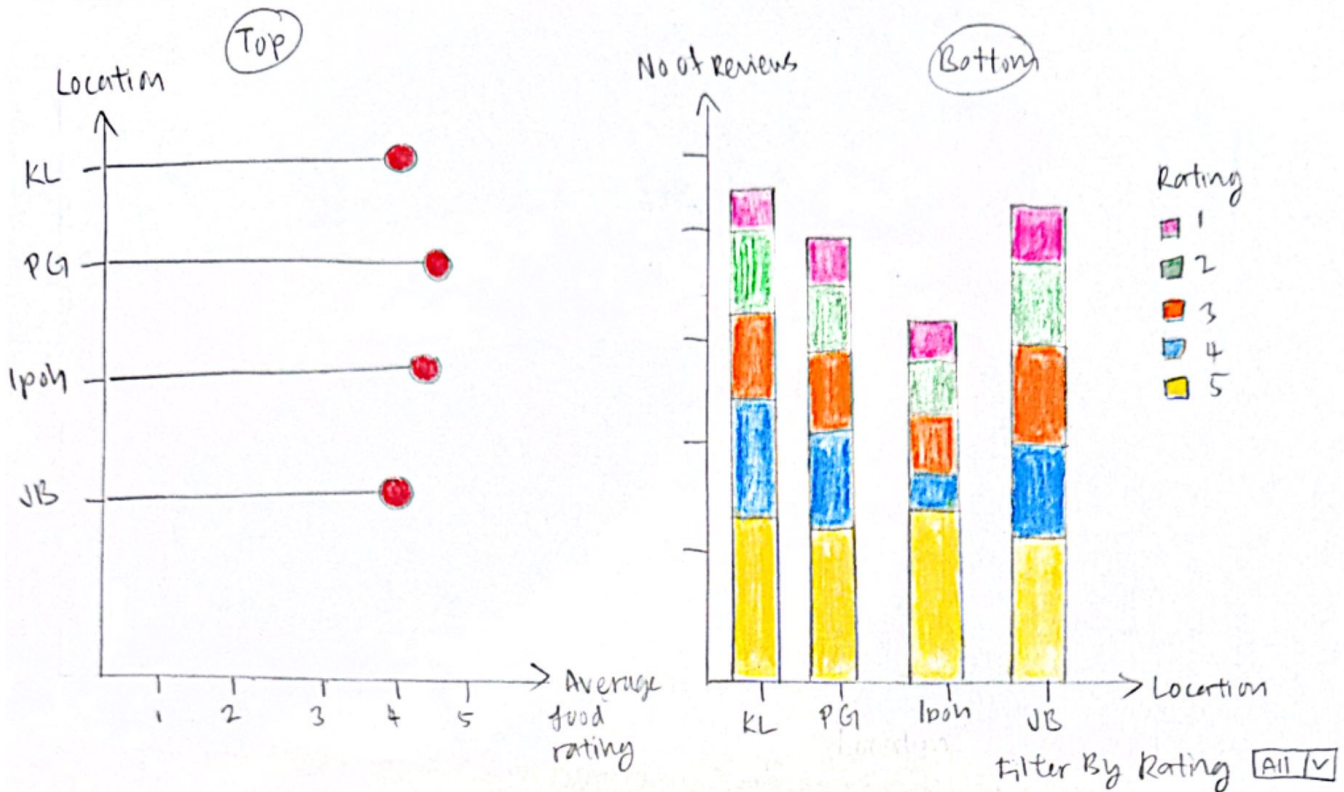 Top
Location
KL
PG
Ipoh
JB
1 2 3 4 5
Average
food
rating
Bottom
No of Reviews
Rating
1
2
3
4
5
KL PG Ipoh JB
Location
Filter By Rating All